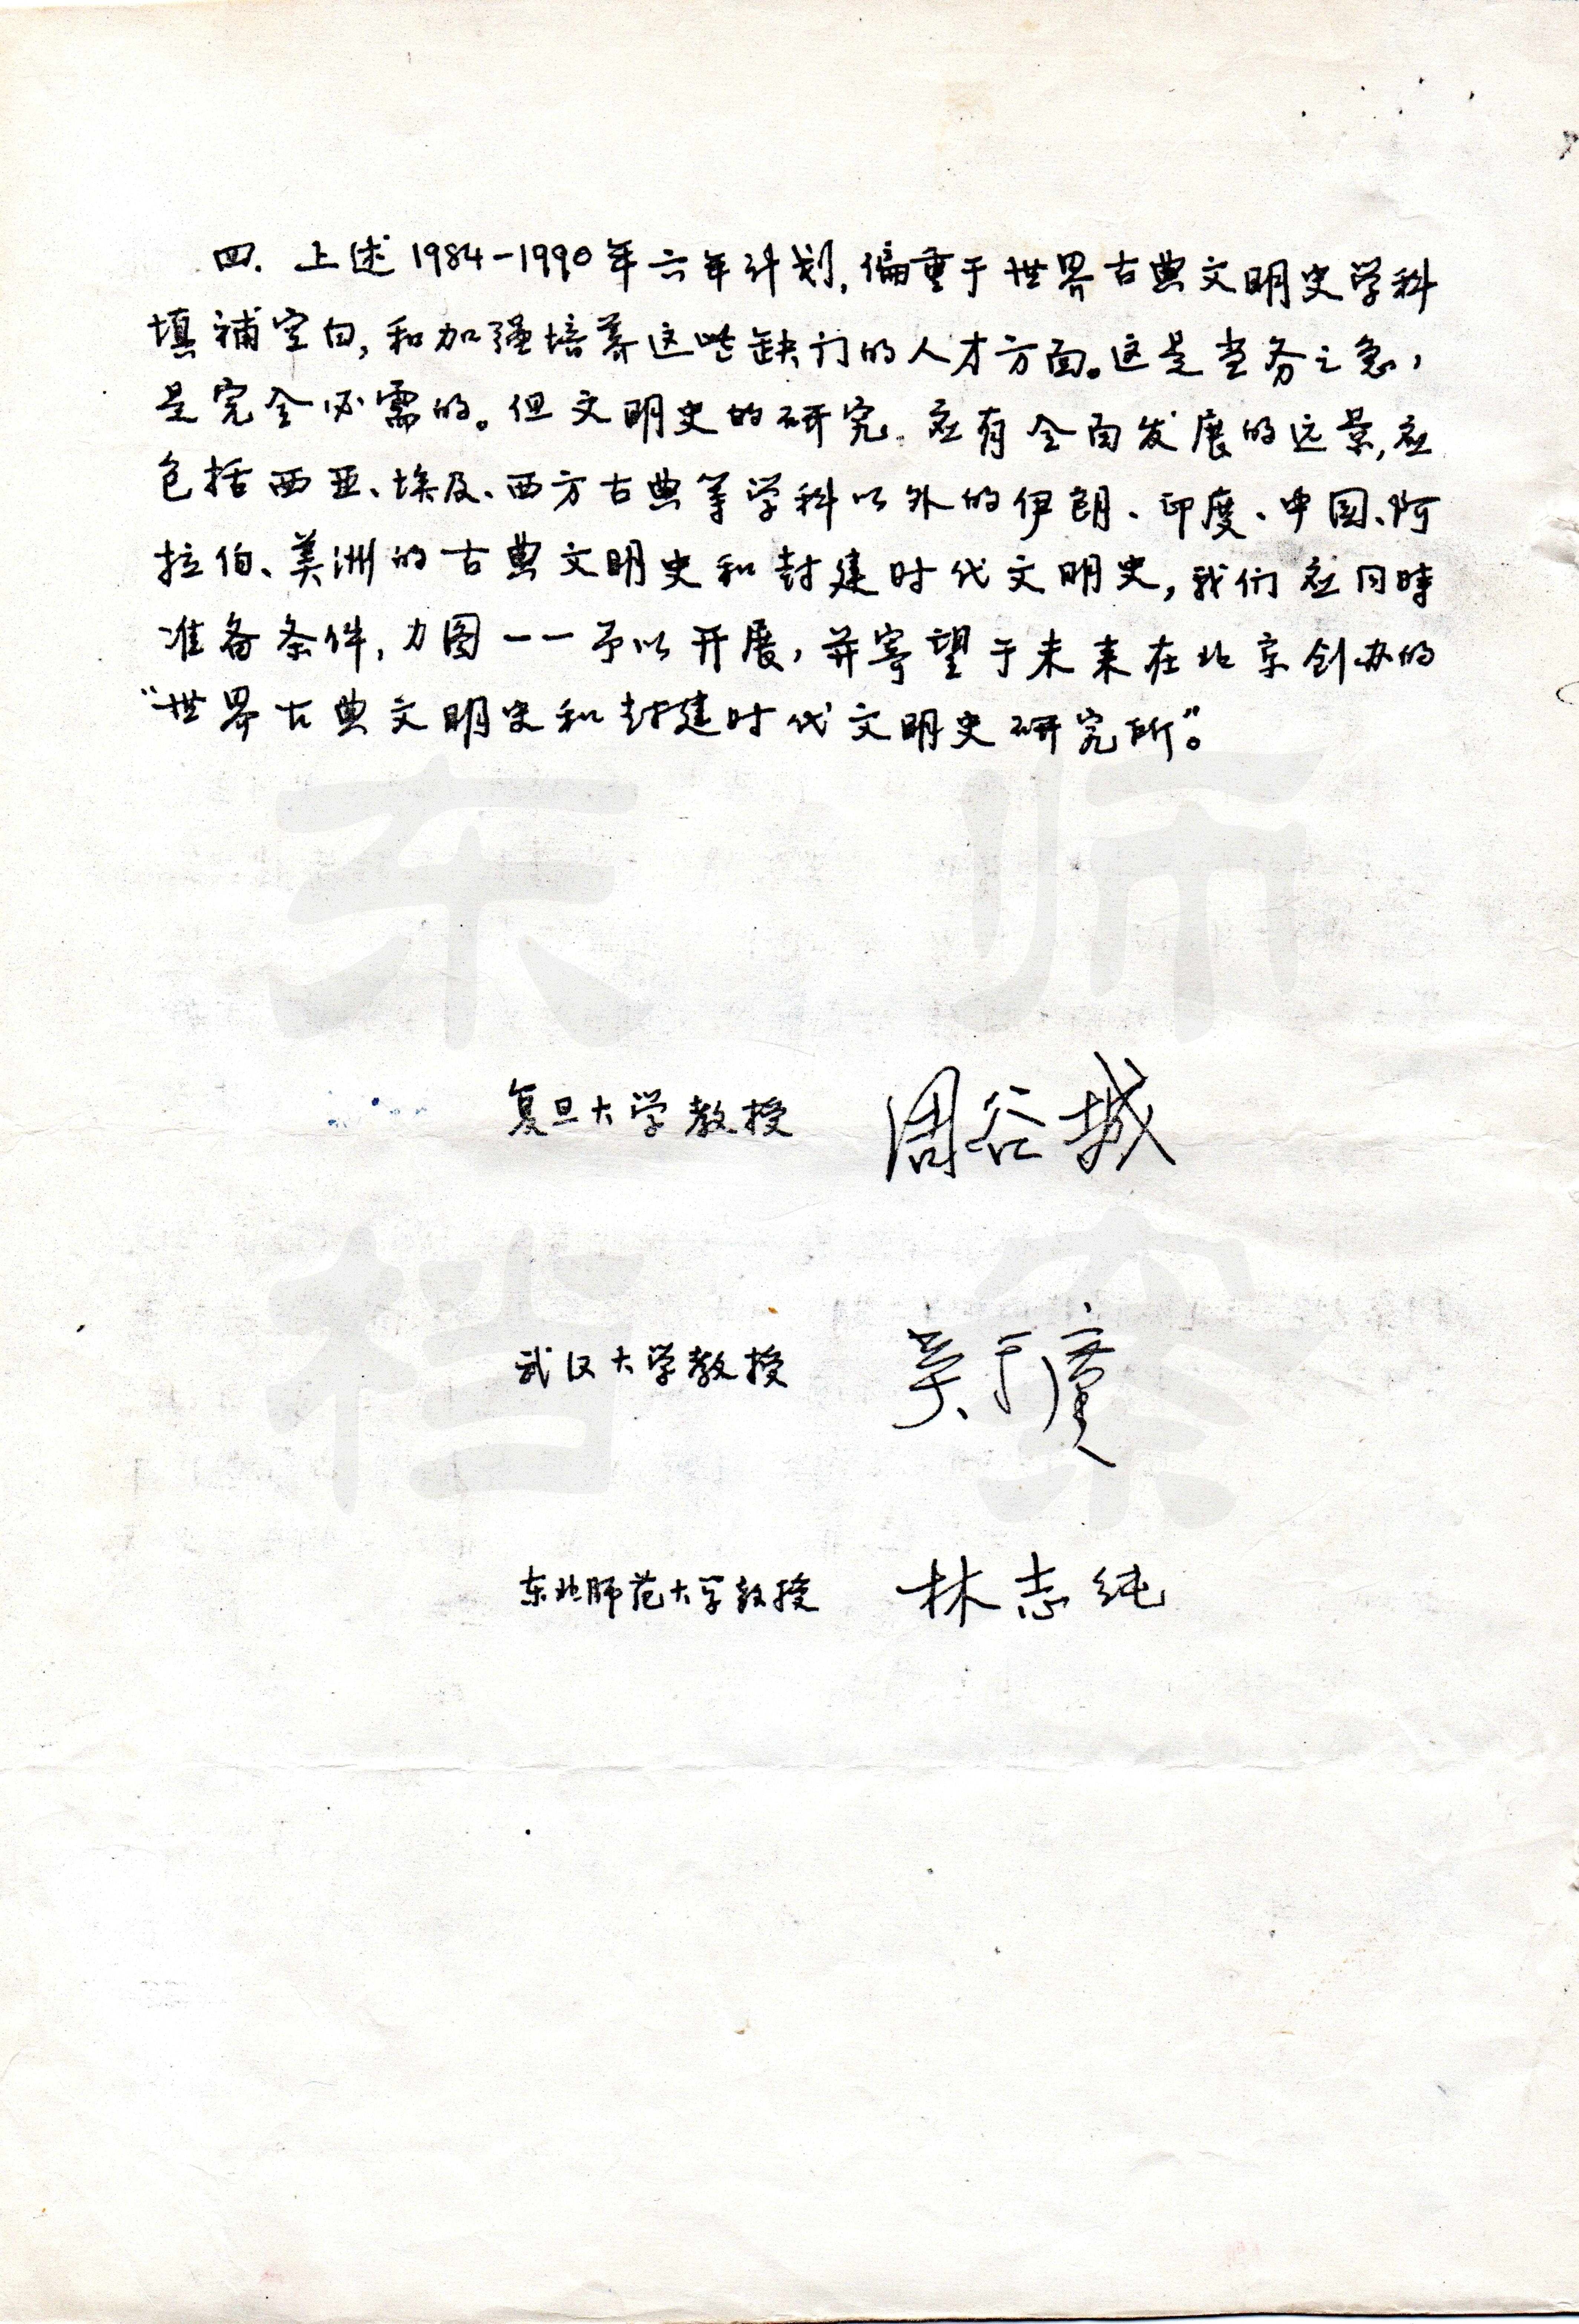 四. 上述1984-1990年六年计划,偏重于世界古典文明史学科
填补空白,和加强培养这些缺门的人才方面。这是当务之急,
是完全必需的。但文明史的研究.应有全面发展的远景,应
包括西亚、埃及、西方古典等学科以外的伊朗、印度、中国、阿
拉伯、美洲的古典文明史和封建时代文明史,我们应同時
准备条件,力图一一予以开展,并寄望于未来在北京创办的
“世界古典文明史和封建时代文明史研究所”。
东师
复旦大学教授 周谷城
档案
武汉大学教授 吴于廑
东北师范大学教授 林志纯